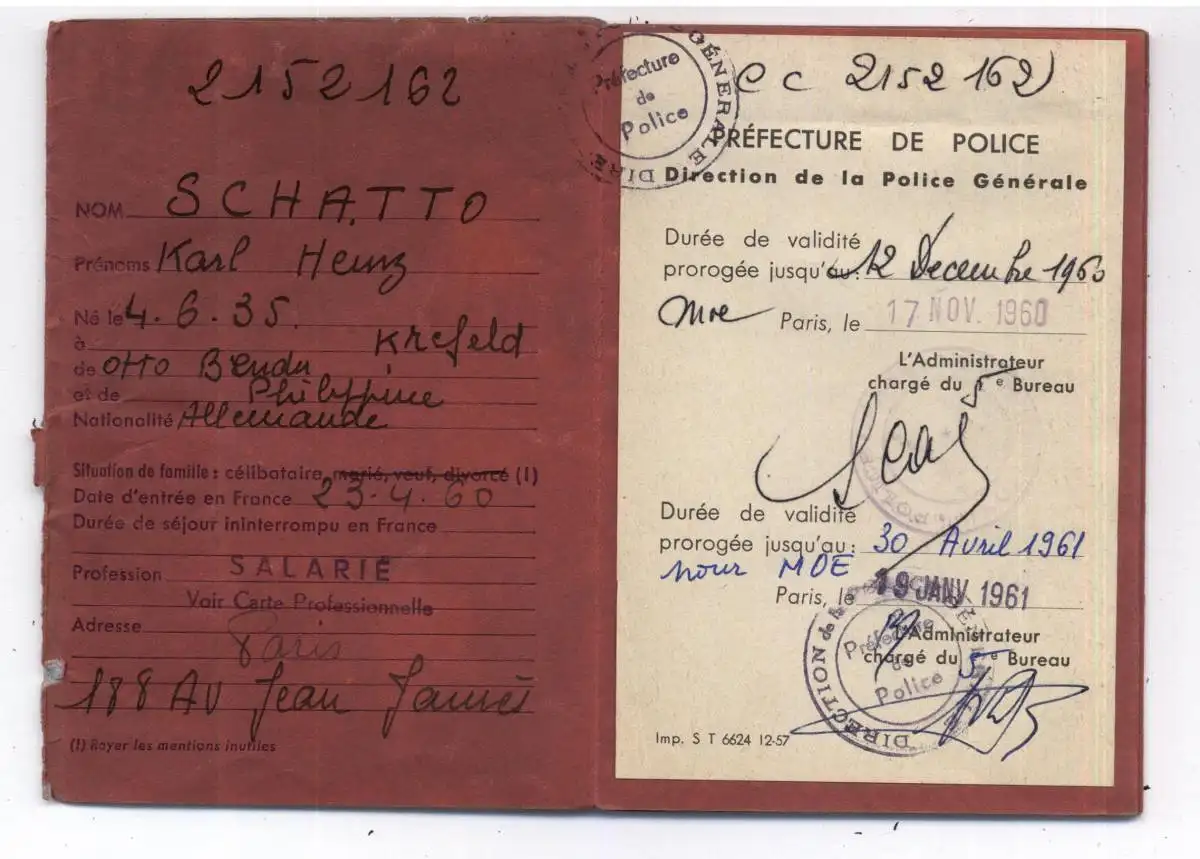 2152162
NOM SCHATTO
Prénoms Karl Heinz
Né le 4.6.35.
à Krefeld
de Otto
et de Philippine
Nationalité Allemande
Situation de famille : célibataire, marié, veuf, divorcé (1)
Date d'entrée en France 23.4.60
Durée de séjour ininterrompu en France
Profession SALARIÉ
Voir Carte Professionnelle
Adresse Paris
188 AV Jean Jaurès
(1) Rayer les mentions inutiles
Préfecture de Police
GÉNÉRALE DIRE
CC 2152162
PRÉFECTURE DE POLICE
Direction de la Police Générale
Durée de validité
prorogée jusqu'au : 12 Décembre 1960
Paris, le 17 NOV. 1960
L'Administrateur
chargé du 5e Bureau
Durée de validité
prorogée jusqu'au : 30 Avril 1961
pour MOE
Paris, le 19 JANV 1961
L'Administrateur
chargé du 5e Bureau
DIRECTION de la
Préfecture de Police
Imp. S T 6624 12-57